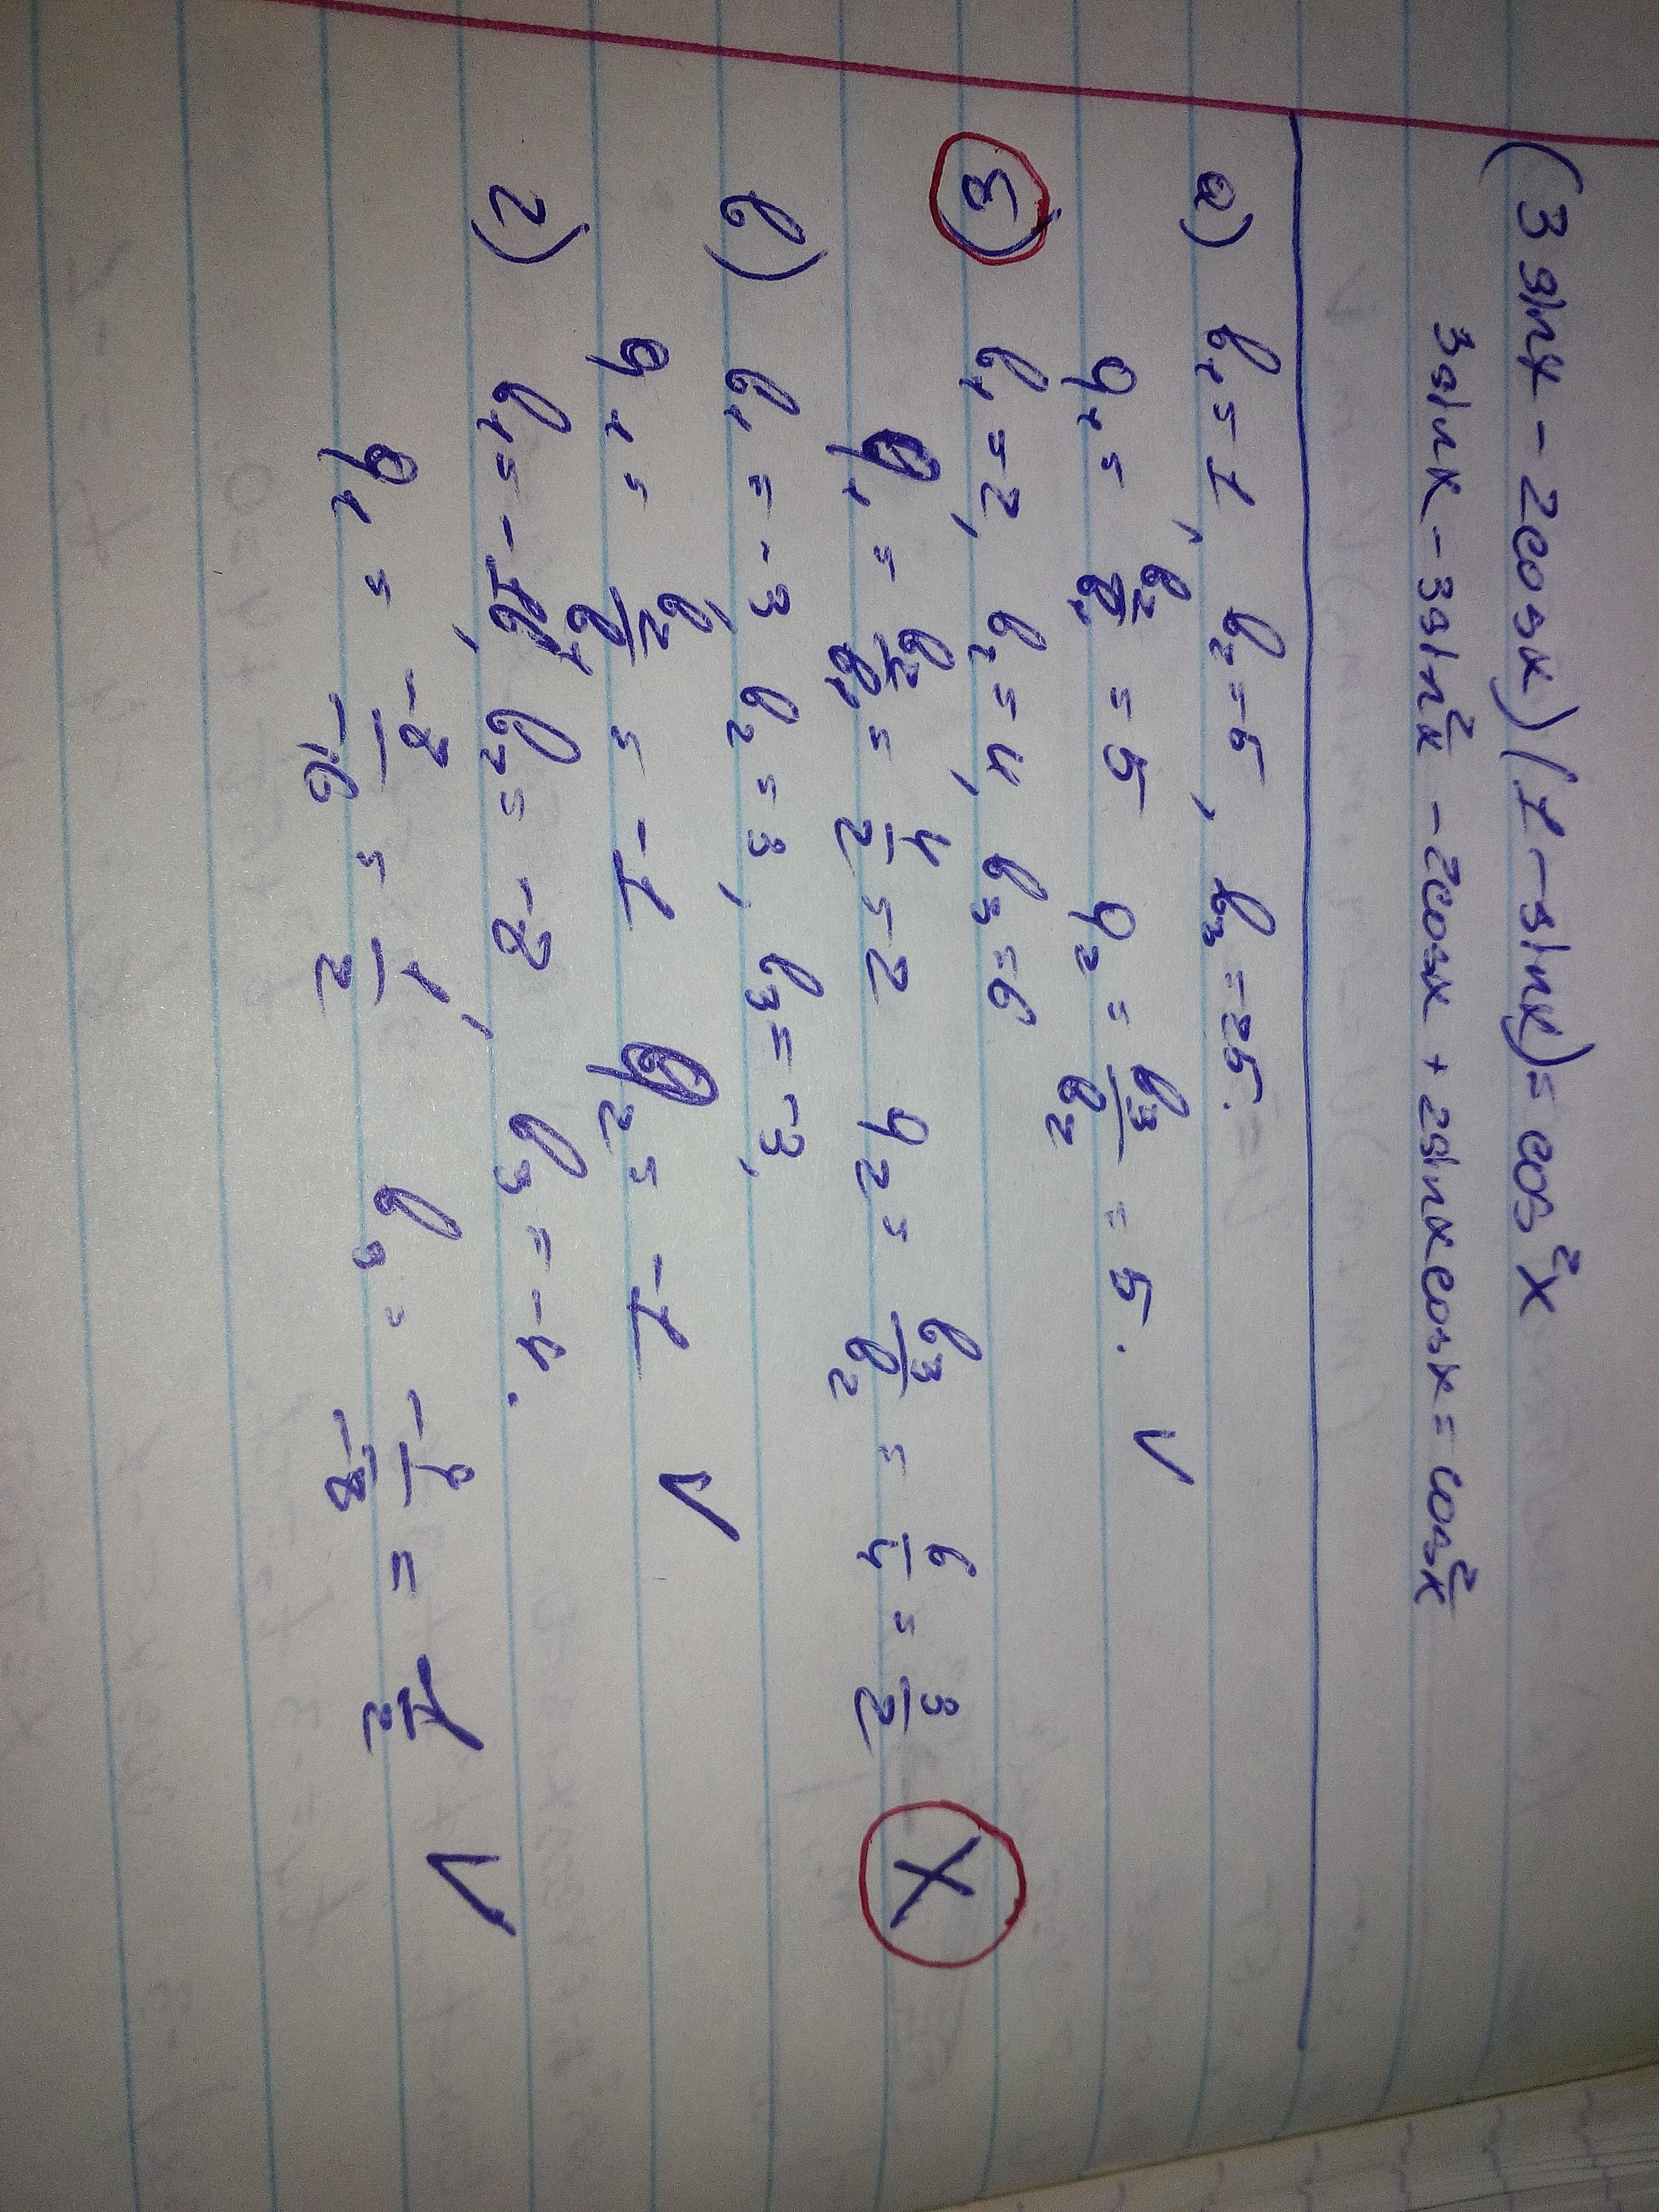 (3sinx - 2cosx)(1 - sinx) = cos²x
3sinx - 3sin²x - 2cosx + 2sinxcosx = cos²x
а) b₁ = 1, b₂ = 5, b₃ = 25.
q₁ = b₂/b₁ = 5 q₂ = b₃/b₂ = 5. V
б) b₁ = 2, b₂ = 4, b₃ = 6
q₁ = b₂/b₁ = 4/2 = 2 q₂ = b₃/b₂ = 6/4 = 3/2 X
в) b₁ = -3 b₂ = 3, b₃ = -3,
q₁ = b₂/b₁ = -1 q₂ = -1 V
г) b₁ = b₂ = -8 b₃ = -4.
q₁ = = 1/2, = 1/2 V